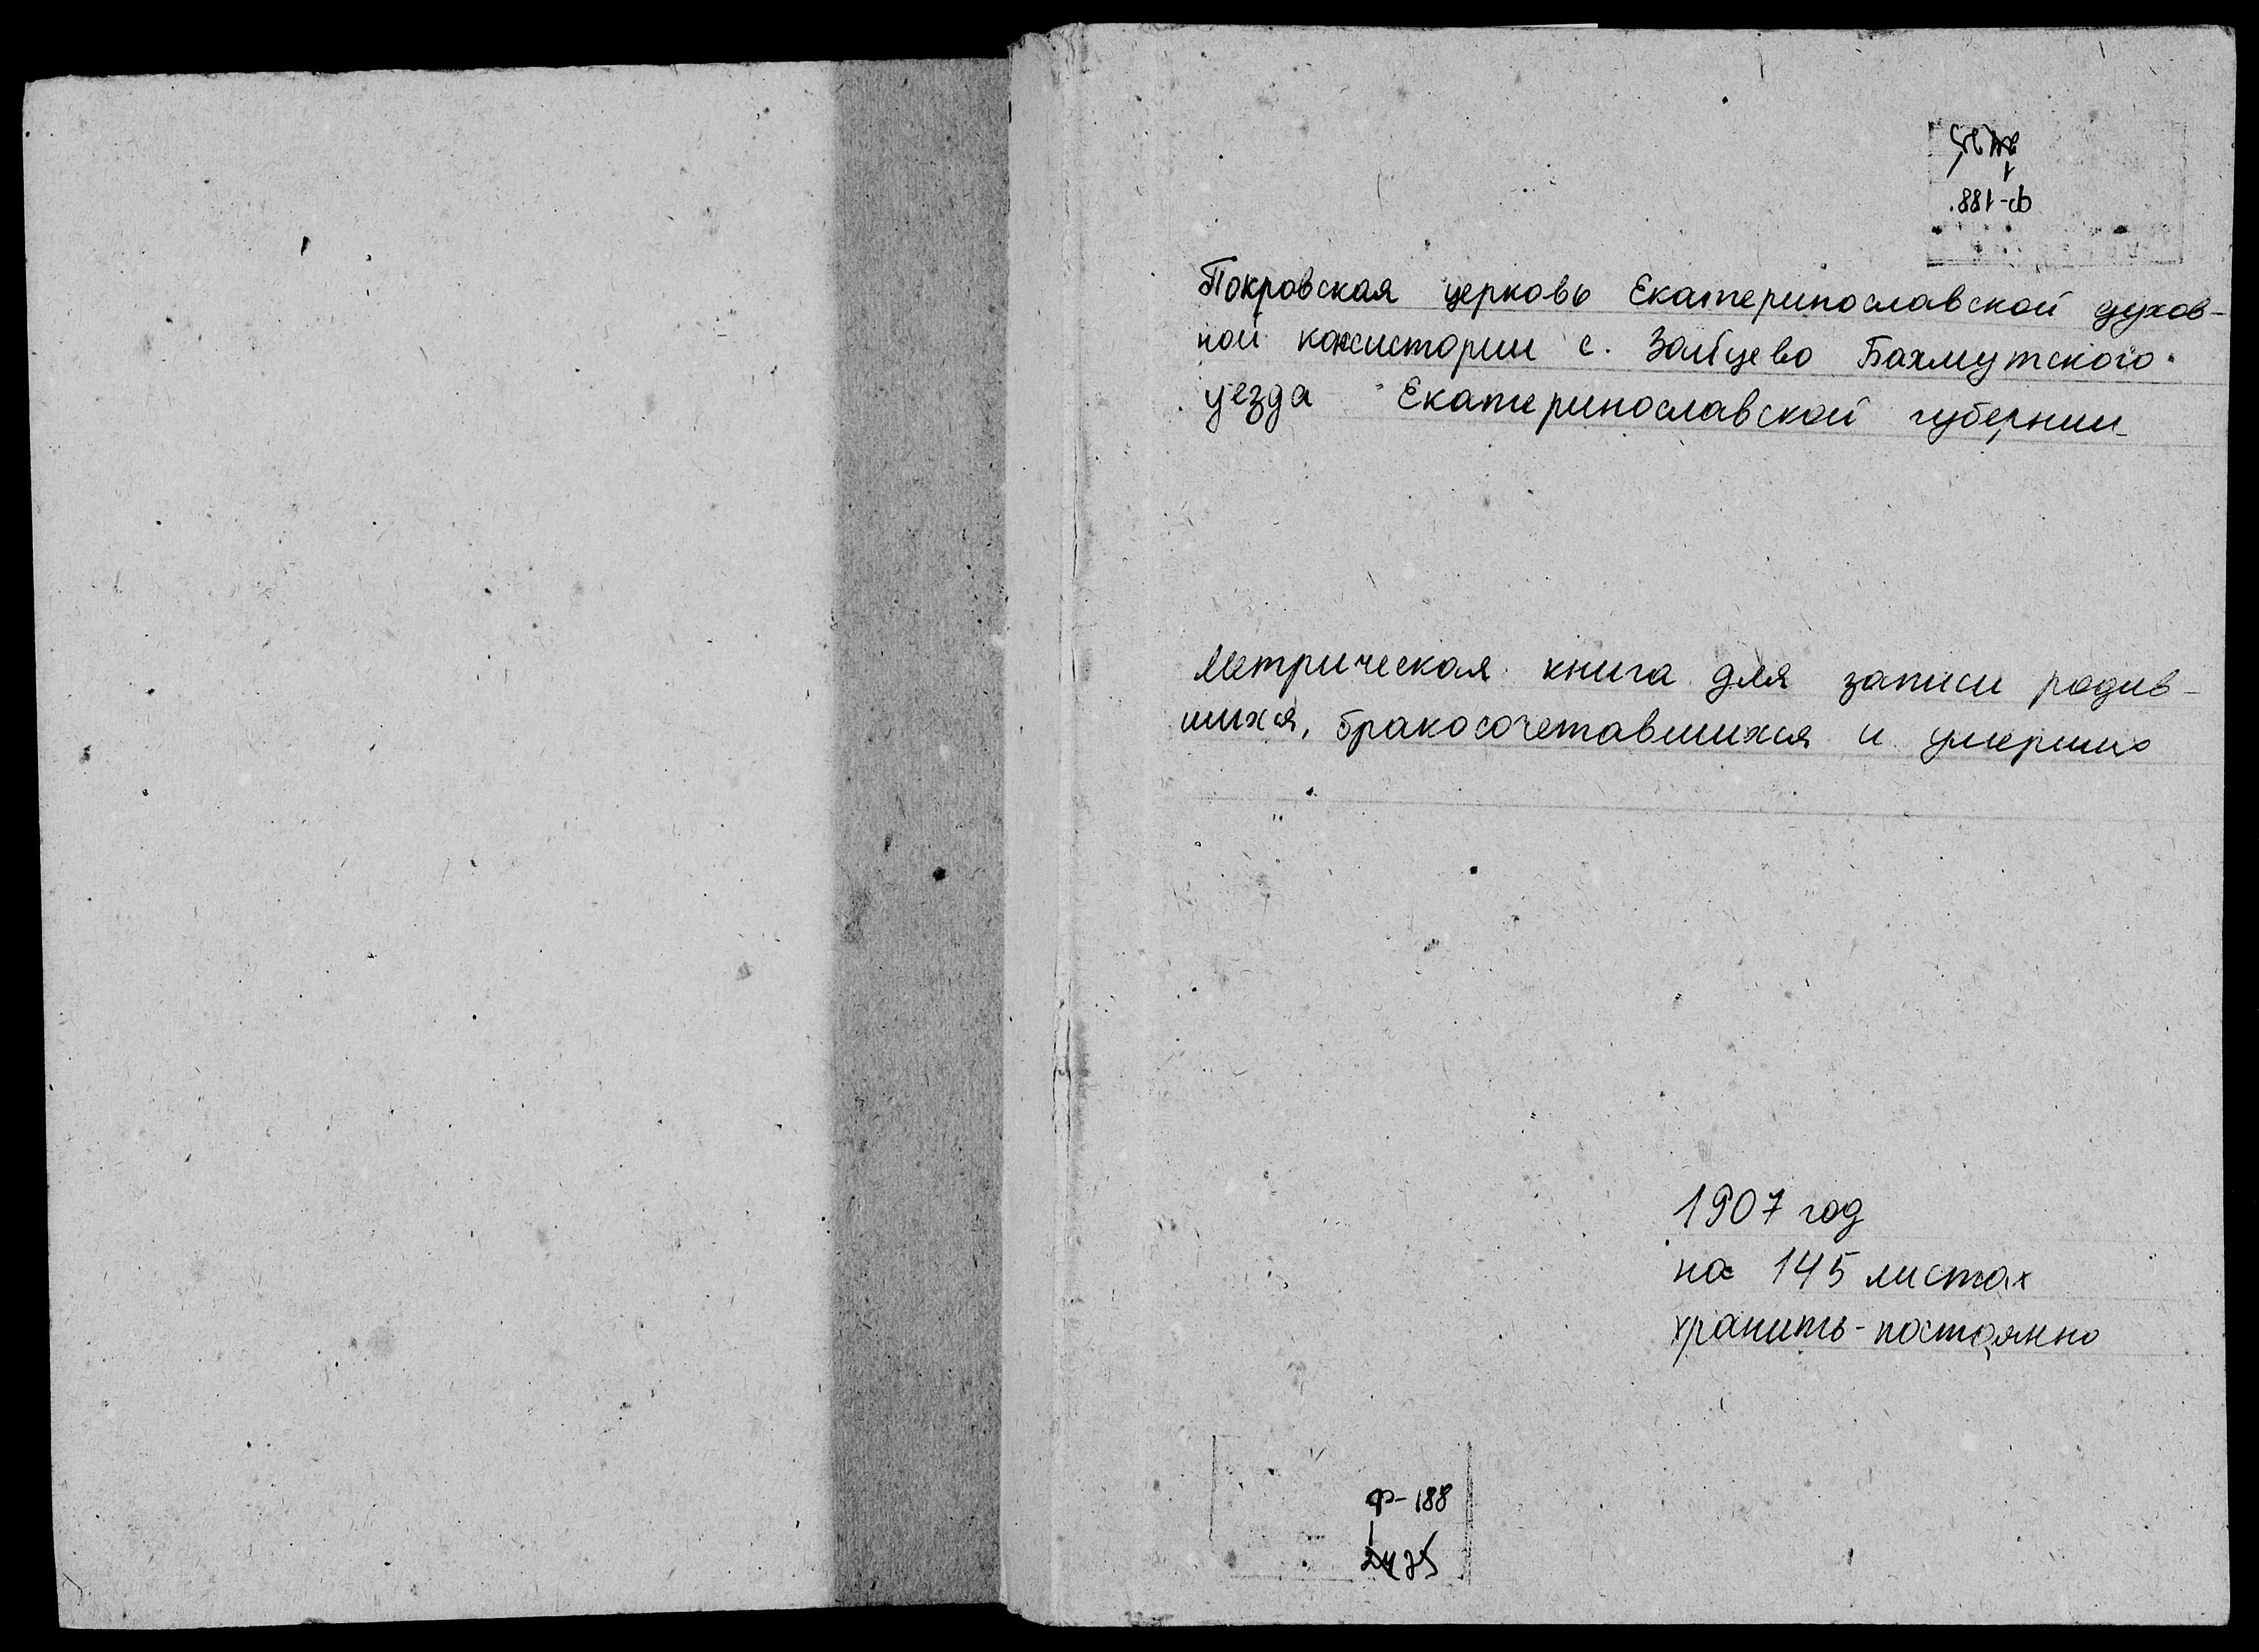 Ф-188
1
Покровская церковь Екатеринославской духов-
ной консистории с. Зайцево Бахмутского
уезда Екатеринославской губернии
Метрическая книга для записи родив-
шихся, бракосочетавшихся и умерших
1907 год
на 145 листах
хранить - постоянно
Ф-188
1